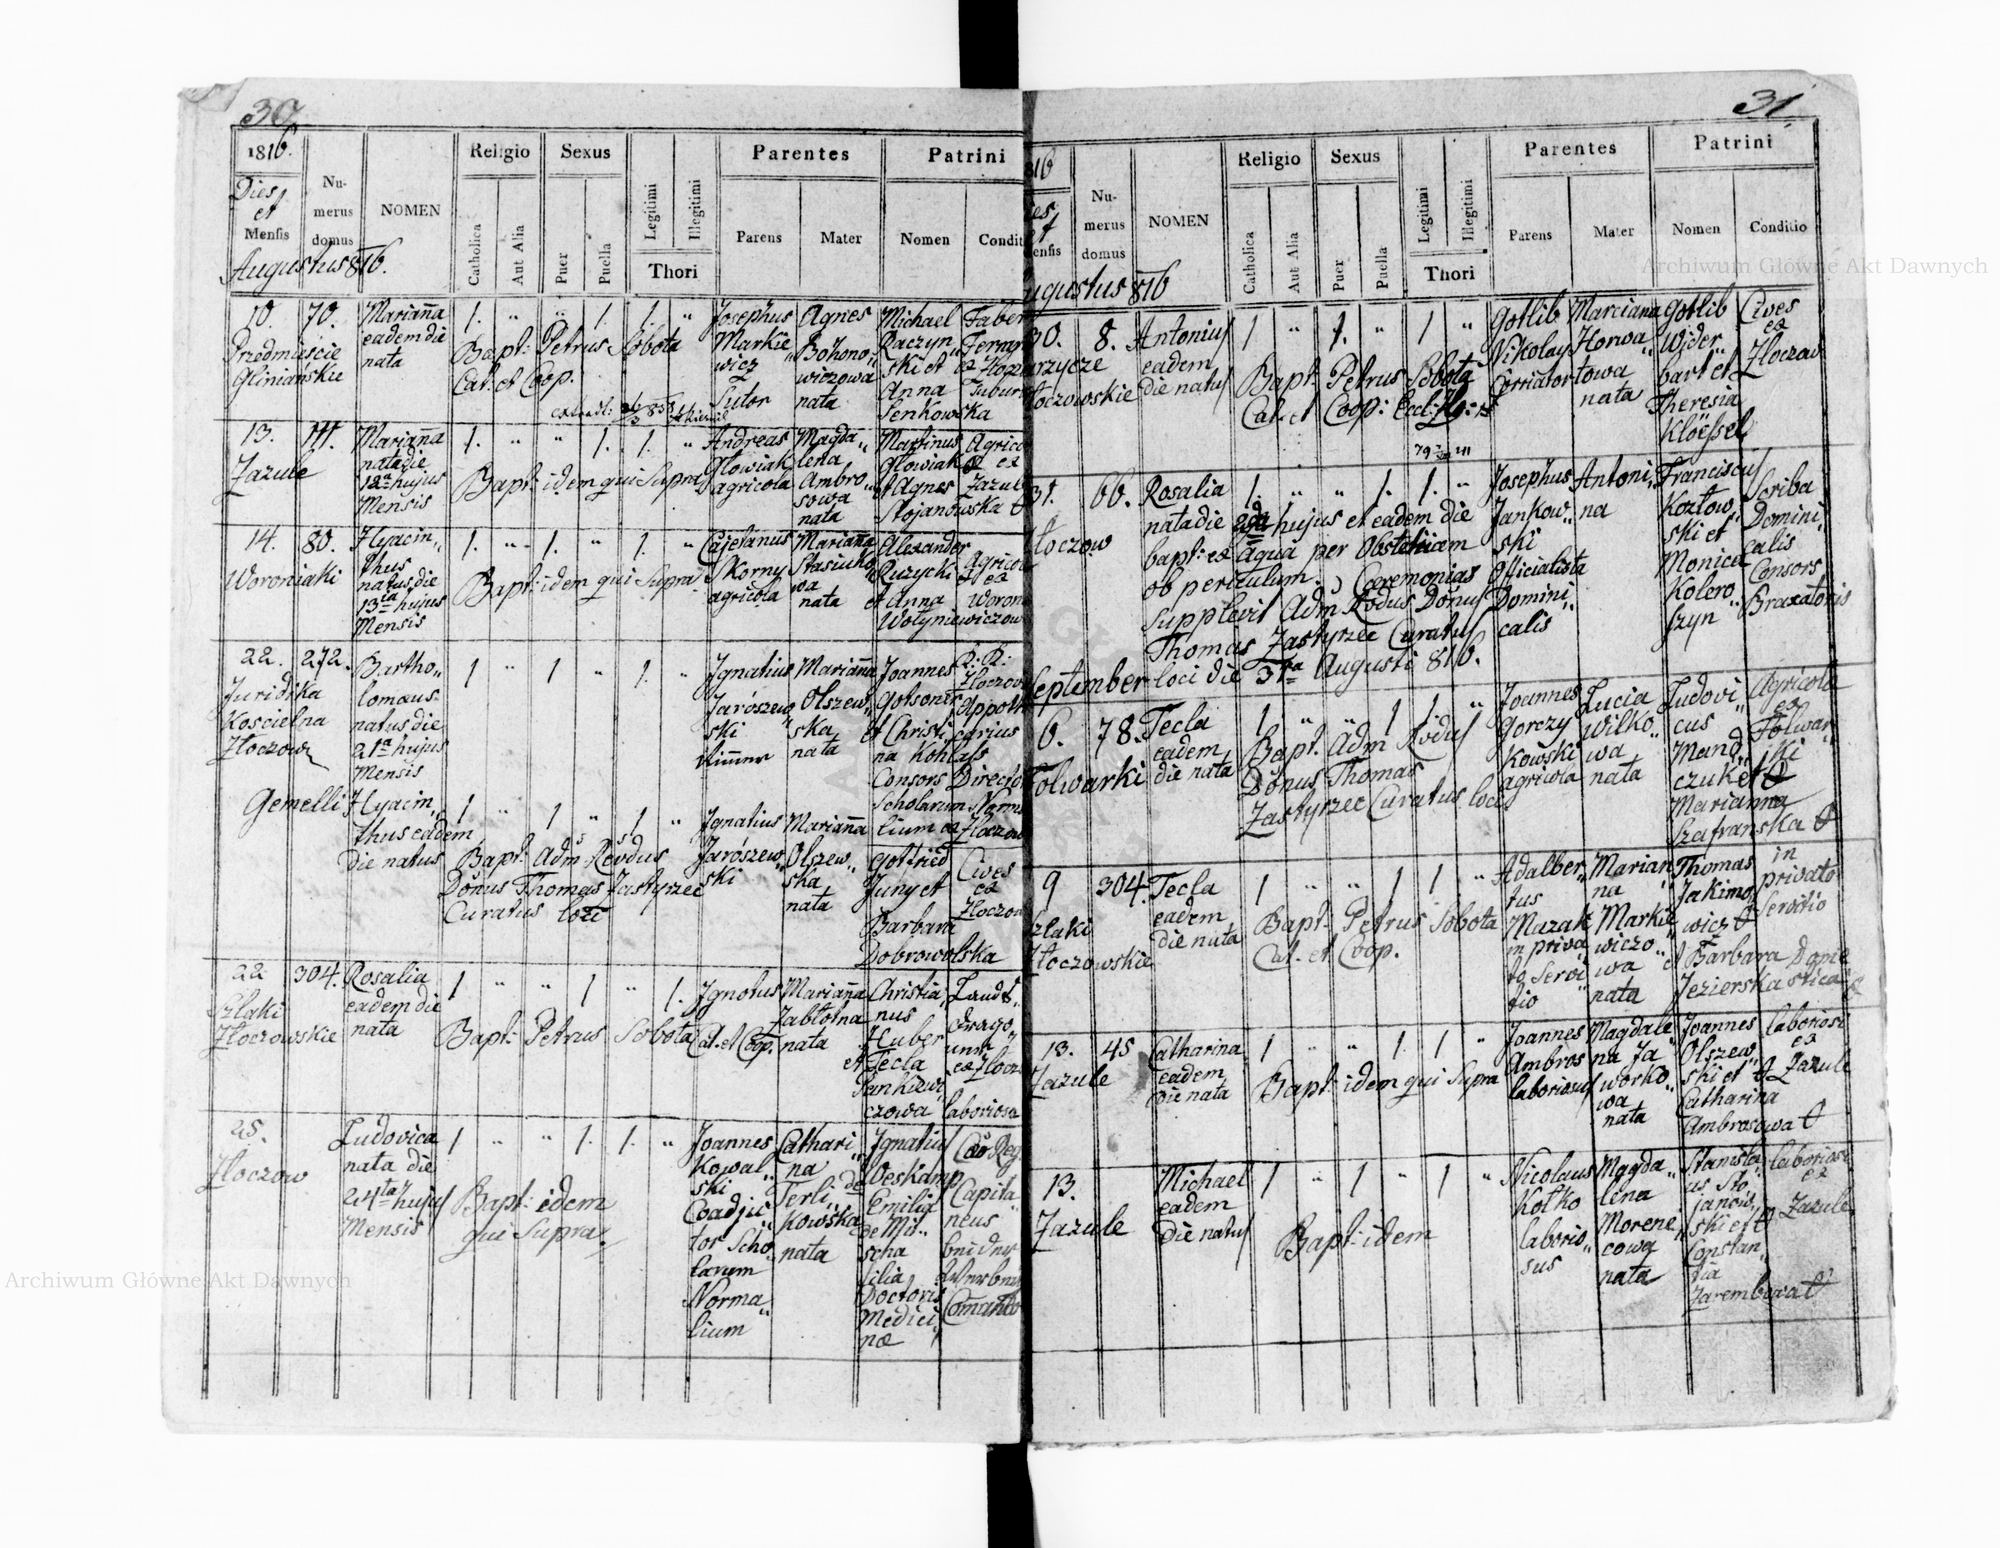 30
1816.
Dies
et
Mensis
Augustus 816.
Nu-
merus
domus
NOMEN
Religio
Catholica
Aut Alia
Sexus
Puer
Puella
Legitimi
Illegitimi
Thori
Parentes
Parens
Mater
Patrini
Nomen
Condit
10.
Przedmieście
Gliniańskie
70.
Marianna
eadem die
nata
1. " " 1. 1. "
Bapt: Petrus Sobota
Cat. et Coop.
Josephus
Markie„
wicz
Sutor
Agnes
Bohono„
wiczowa
nata
Michael
Raczyn„
ski et
Anna
Senkowska
Faber
Ferrar
ex Złocz
Suburb
13.
Zazule
111.
Marianna
nata die
12a hujus
Mensis
1. " " 1. 1. "
Bapt: idem qui Supra
Andreas
Głowiak
agricola
Magda„
lena
Ambro„
sowa
nata
Martinus
Głowiak
et Agnes
Stojanowska
Agrico
ex
Zazul
14.
Woroniaki
80.
Hyacin„
thus
natus die
13tia hujus
Mensis
1. " 1. " 1. "
Bapt: idem qui Supra
Cajetanus
Skorny
agricola
Marianna
Stasiuko„
wa
nata
Alexander
Ruzycki
et Anna
Wołyniewiczow
Agricol
ex
Woron
22.
Juridika
Koscielna
Złoczow
272.
Bartho„
lomæus
natus die
21a hujus
Mensis
1 " 1 " 1. "
Ignatius
Jarószew„
ski
Marianna
Olszew„
ska
nata
Joannes
Gotsoner
et Christi
na Kohlass
Consors
Scholarum
lium ex
Złoczov
Appoth
carius
Directo
Norma
Złoczow
Gemelli
Hyacin„
thus eadem
die natus
1 " 1 " 1 "
Bapt: Adm Revdus
Donus Thomas Zastyrzec
Curatus loci
Ignatius
Jarószew„
ski
Marianna
Olszew„
ska
nata
Gotfried
Juny et
Barbara
Dobrowolska
Cives
ex
Złoczow
22
Szlaki
Złoczowskie
304.
Rosalia
eadem die
nata
1 " " 1 " 1.
Bapt: Petrus Sobota Cat. et Coop.
Ignotus
Marianna
Jabłońna
nata
Christia„
nus
Huber
et Tecla
Jankiewi„
czowa
Drago„
ex Złocz
laboriosa
25.
Złoczow
Ludovica
nata die
24ta hujus
Mensis
1 " " 1. 1. "
Bapt: idem
qui Supra
Joannes
Kowal„
ski
Coadju„
tor Scho„
larum
Norma„
lium
Cathari„
na
Terli„
kowska
nata
Ignatius
de Oeskamp
Emilia
de Mit„
scha
filia
Doctoris
Medici„
næ
Cæs Reg
Capita„
neus
Comendo
31.
816
Dies
et
Mensis
Augustus 816
Nu-
merus
domus
NOMEN
Religio
Catholica
Aut Alia
Sexus
Puer
Puella
Legitimi
Illegitimi
Thori
Parentes
Parens
Mater
Patrini
Nomen
Conditio
30.
arzycze
Złoczowskie
8.
Antonius
eadem
die natus
1 " 1. " 1 "
Bapt: Petrus Sobota
Cat. et Coop:
Gotlib
Nikolay
Marciana
Horwa„
towa
nata
Gotlib
Wider„
bart et
Theresia
Kloessel
Cives
ex
Złoczow
31.
Złoczow
66.
Rosalia
nata die hujus et eadem die
bapt: ex Aqua per Obstetricem
ob periculum. Cœremonias
Supplevit Adm Rvdus Donus
Thomas Zastyrzec Curatus
loci die 31ma Augusti 816.
1. " " 1. 1. "
Josephus
Jankow„
ski
Officialista
Domini„
calis
Antoni„
na
Franciscus
Kozłow„
ski et
Monica
Kolero„
szyn
Scriba
Domini„
calis
Consors
Braxatoris
September
6.
Folwarki
78.
Tecla
eadem
die nata
1 " " 1 1. "
Bapt: Adm Rvdus
Donus Thomas
Zastyrzec Curatus loci
Joannes
Gorczy„
kowski
agricola
Lucia
Wilko„
wa
nata
Ludovi„
cus
Mand„
czuk et
Marianna
Szafranska
Agricola
ex
Folwar„
ki
9
Szlaki
Złoczowskie
304.
Tecla
eadem
die nata
1 " " 1 1 "
Bapt: Petrus Sobota
Cat. et Coop.
Adalber„
tus
Mazak
in priva„
to Servi„
tio
Marian„
na
Markie„
wiczo„
wa
nata
Thomas
Jakimo„
wicz
et Barbara
Jezierska
in
privato
Servitio
13.
Zazule
45
Catharina
eadem
die nata
1 " " 1 1 "
Bapt: idem qui Supra
Joannes
Ambros
laboriosus
Magdale„
na Ja„
worko„
wa
nata
Joannes
Olszew„
ski et
Catharina
Ambrosowa
laboriosi
ex
Zazule
13.
Zazule
Michael
eadem
die natus
1 " 1 " 1 "
Bapt: idem
Nicolaus
Kołko
laborio„
sus
Magda„
lena
Morene„
cowa
nata
Stanisła„
us Sto„
janow„
ski et
Constan„
tia
Zarembowa
laboriosi
ex
Zazule
Archiwum Główne Akt Dawnych
Archiwum Główne Akt Dawnych